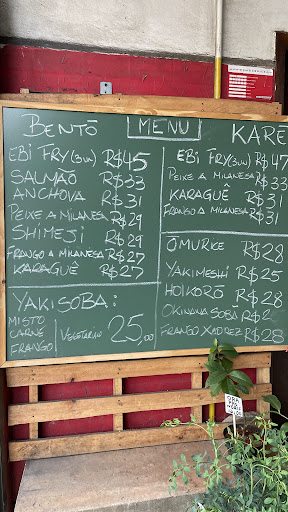 BENTŌ
EBI FRY (3UN) R$45
SALMÃO R$33
ANCHOVA R$31
PEIXE A MILANESA R$29
SHIMEJI R$29
FRANGO A MILANESA R$27
KARAGUÊ R$27
YAKISOBA:
MISTO
CARNE
FRANGO
VEGETARIANO
25,00
MENU
KARÊ
EBI FRY (3UN) R$47
PEIXE A MILANESA R$33
KARAGUÊ R$31
FRANGO A MILANESA R$31
OMURICE R$28
YAKIMESHI R$25
HOIKORŌ R$28
OKINAWA SOBÁ R$2
FRANGO XADREZ R$28